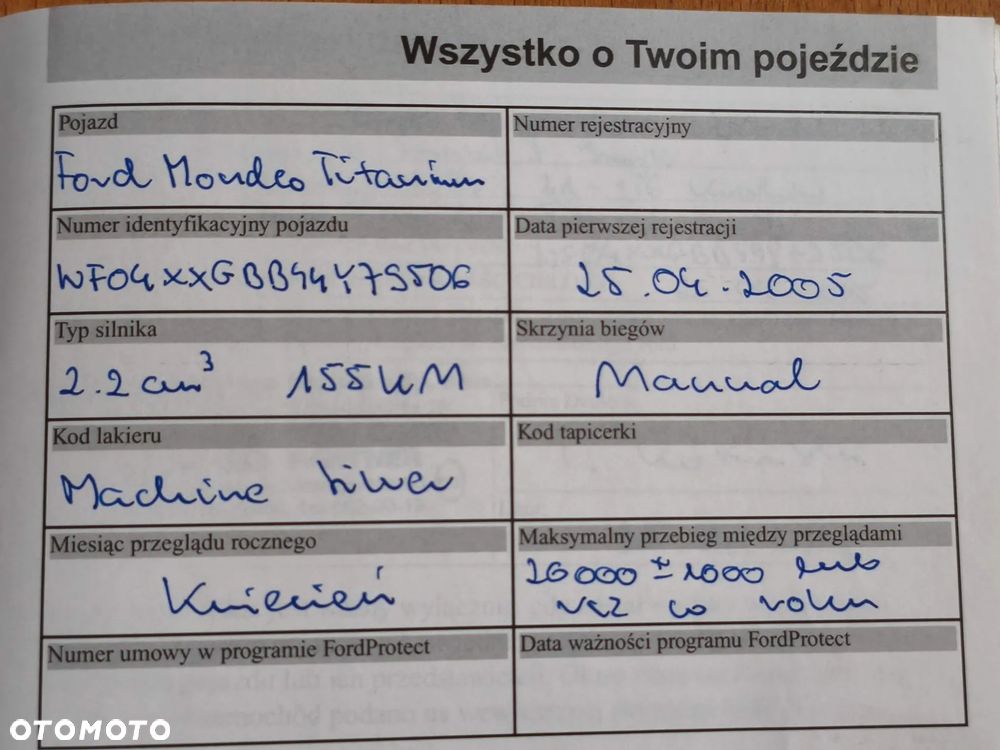 Wszystko o Twoim pojeździe
Pojazd
Numer rejestracyjny
Ford Mondeo Titanium
Numer identyfikacyjny pojazdu
Data pierwszej rejestracji
WF04XXGBB44Y79506
25.04.2005
Typ silnika
Skrzynia biegów
2.2 cm³ 155 kM
Manual
Kod lakieru
Kod tapicerki
Machine Silver
Miesiąc przeglądu rocznego
Maksymalny przebieg między przeglądami
Kwiecień
20000 ± 1000 lub
raz co roku
Numer umowy w programie FordProtect
Data ważności programu FordProtect
OTOMOTO